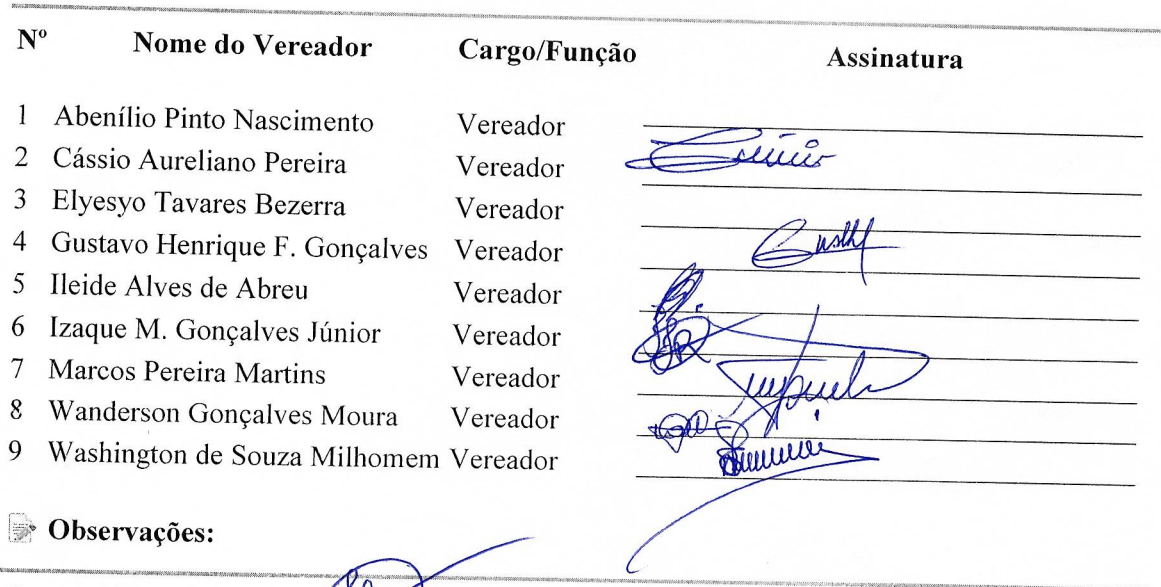 Nº Nome do Vereador Cargo/Função Assinatura
1 Abenílio Pinto Nascimento Vereador
2 Cássio Aureliano Pereira Vereador
3 Elyesyo Tavares Bezerra Vereador
4 Gustavo Henrique F. Gonçalves Vereador
5 Ileide Alves de Abreu Vereador
6 Izaque M. Gonçalves Júnior Vereador
7 Marcos Pereira Martins Vereador
8 Wanderson Gonçalves Moura Vereador
9 Washington de Souza Milhomem Vereador
Observações: